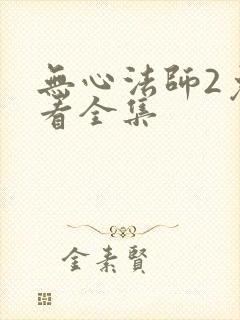 無心法師2免
看全集
金素賢